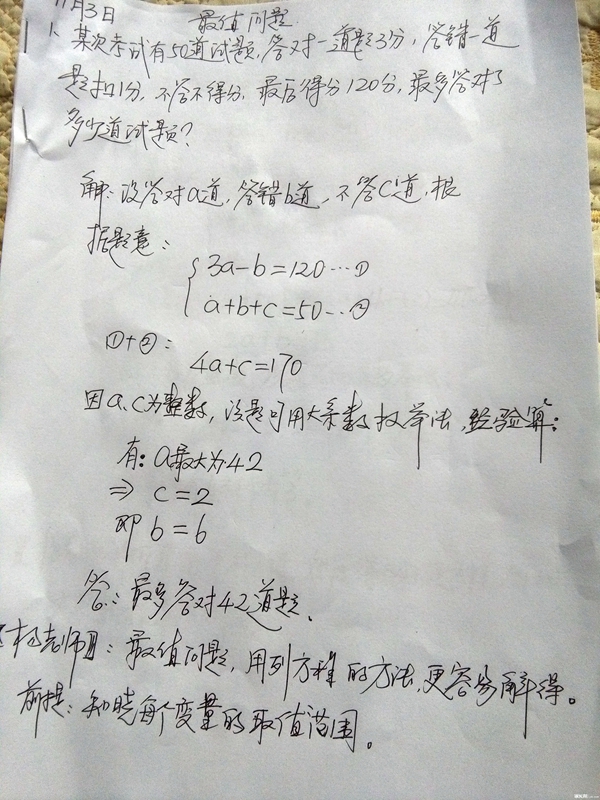 11月3日 最值问题
1、某次考试有50道试题,答对一道题3分,答错一道
题扣1分,不答不得分,最后得分120分,最多答对了
多少道试题?
解:设答对a道,答错b道,不答C道,根
据题意:
3a-b=120…①
a+b+c=50…②
①+②:
4a+c=170
因a、c为整数,该题可用大系数枚举法,经验算:
有:a最大为42
⇒ c=2
即 b=6
答:最多答对42道题、
杨老师】:最值问题,用列方程的方法,更容易解得。
前提:知晓每个变量的取值范围。